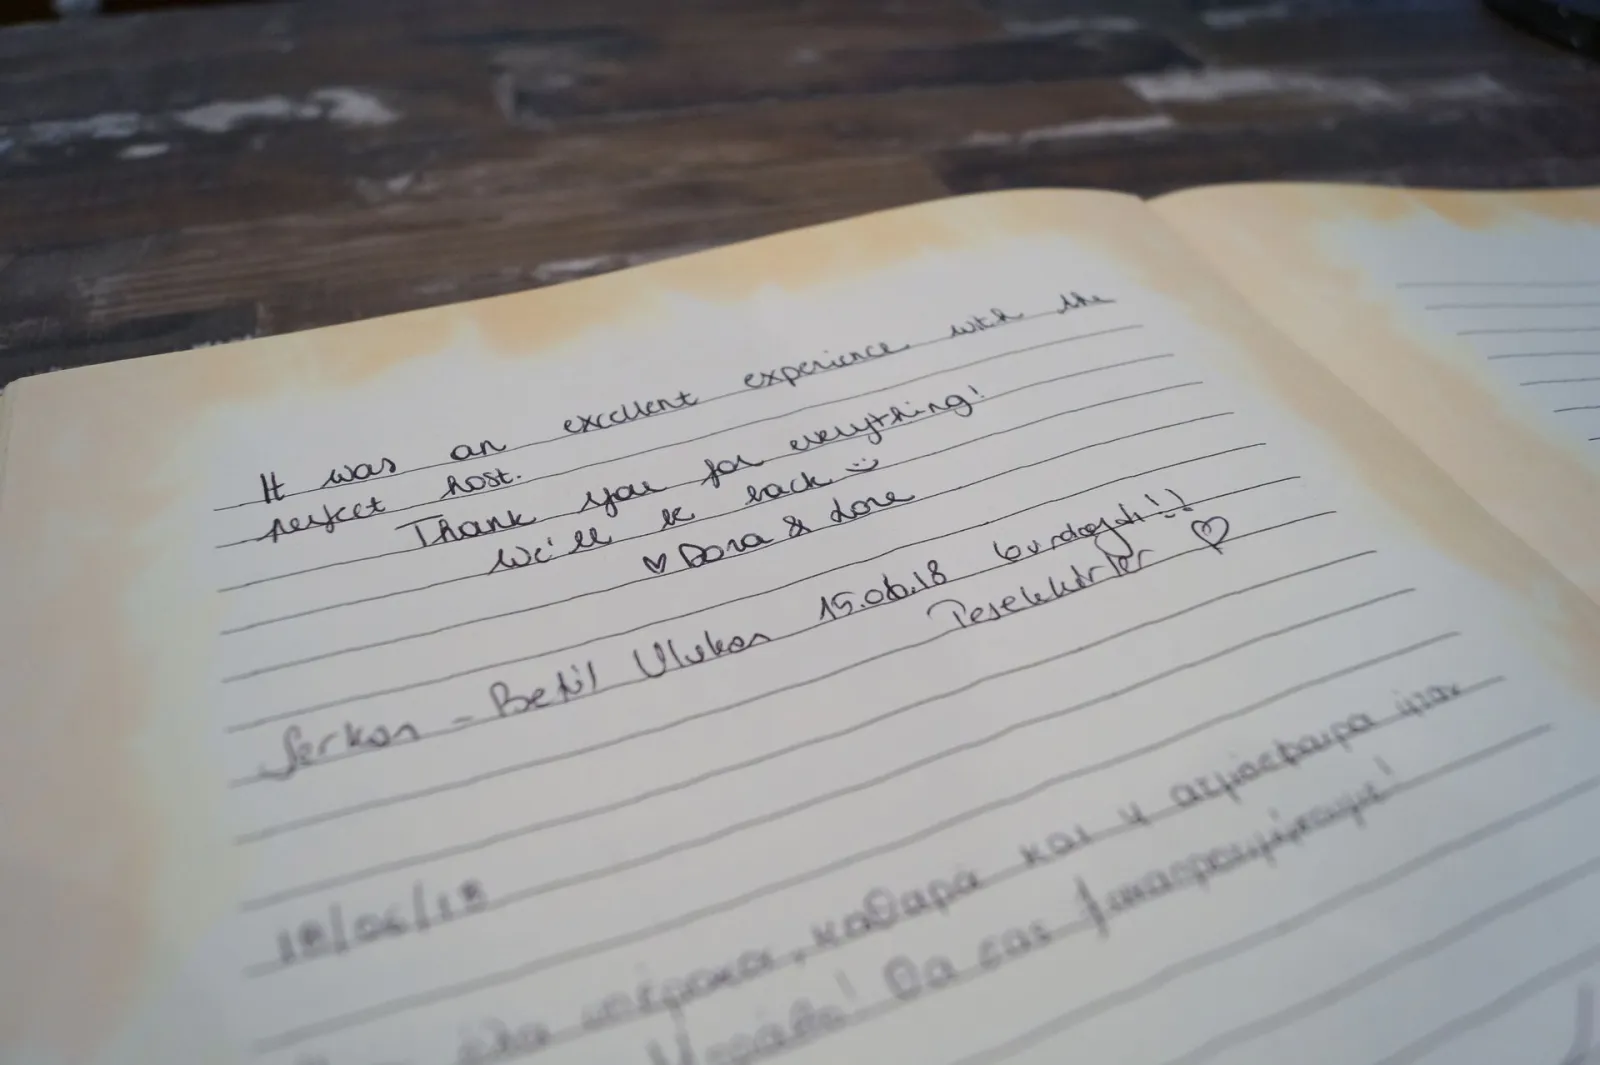 It was an excellent experience with the
perfect host.
Thank you for everything!
We'll be back :)
♡ Dora & Lore
Serkan - Betül Ulukan 15.06.18 burdaydı!!
Teşekkürler ♡
18/06/18
όλα υπέροχα, καθαρά και η ατμόσφαιρα
Θα σας